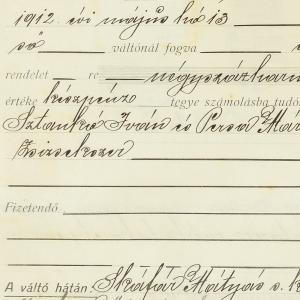 1912. évi május hó 13
ső váltónál fogva
rendelet — re — négyszázhar
értéke készpénz tegye számolásba tudó
Sztankó Iván és Persa Már
Zsizsekszer
Fizetendő
A váltó hátán: Skáfár Mátyás s. k